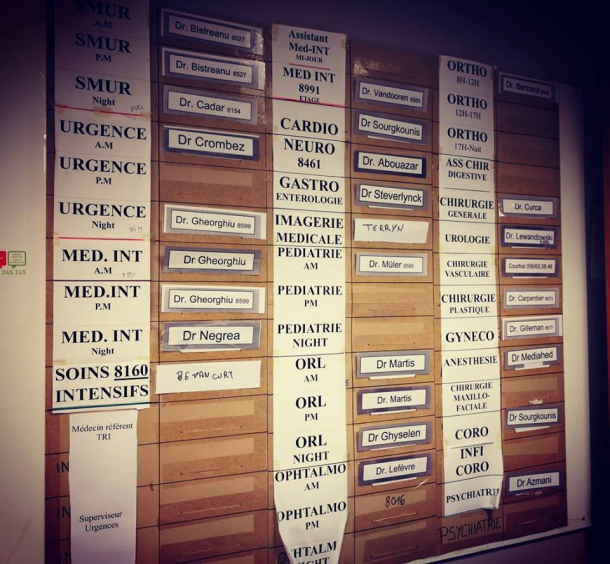 SMUR
A.M
SMUR
P.M
SMUR
Night
URGENCE
A.M
URGENCE
P.M
URGENCE
Night
MED. INT
A.M
MED.INT
P.M
MED. INT
Night
SOINS 8160
INTENSIFS
Médecin référent
TRI
Superviseur
Urgences
Dr. Bistreanu 8527
Dr. Bistreanu 8527
Dr. Cadar 8154
Dr. Crombez
Dr. Gheorghiu 8599
Dr. Gheorghiu
Dr. Gheorghiu 8599
Dr Negrea
BETANCURT
Assistant
Med-INT
MI-JOUR
MED INT
8991
ETAGE
CARDIO
NEURO
8461
GASTRO
ENTEROLOGIE
IMAGERIE
MEDICALE
PEDIATRIE
AM
PEDIATRIE
PM
PEDIATRIE
NIGHT
ORL
AM
ORL
PM
ORL
NIGHT
OPHTALMO
AM
OPHTALMO
PM
OPHTALM
NIGHT
Dr. Vandooren
Dr Sourgkounis
Dr. Abouazar
Dr Steverlynck
TERRYN
Dr. Müler
Dr Martis
Dr. Martis
Dr Ghyselen
Dr. Lefèvre
8016
ORTHO
8H-12H
ORTHO
12H-17H
ORTHO
17H-Nuit
ASS CHIR
DIGESTIVE
CHIRURGIE
GENERALE
UROLOGIE
CHIRURGIE
VASCULAIRE
CHIRURGIE
PLASTIQUE
GYNECO
ANESTHESIE
CHIRURGIE
MAXILLO-
FACIALE
CORO
INFI
CORO
PSYCHIATRIE
PSYCHIATRIE
Dr. Bertrand
Dr. Curca
Dr. Lewandowski
Dr. Carpentier
Dr. Gilleman
Dr Mediahed
Dr Sourgkounis
Dr Azmani
245 245